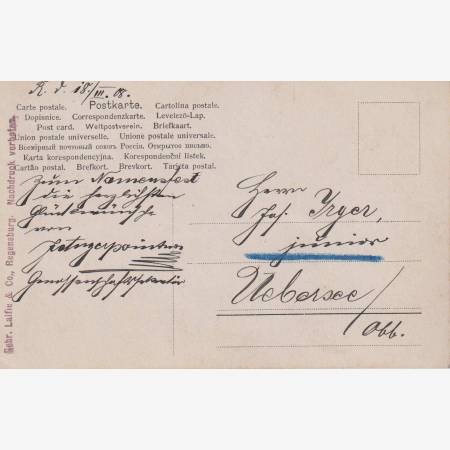 R. d. 18/III. 08.
Carte postale. Postkarte. Cartolina postale.
Dopisnice. Correspondenzkarte. Levelező-Lap.
Post card. Weltpostverein. Briefkaart.
Union postale universelle. Unione postale universale.
Всемірный почтовый союзъ Россія. Открытое письмо.
Karta korespondencyjna. Korespondenční lístek.
Cartão postal. Brefkort. Brevkort. Tarjeta postal.
Zum Namensfest
die herzlichsten
Glückwünsche
von
Genossenschaftssekretär
Herrn
Jos. Irger,
junior
Uebersee/
Obb.
Gebr. Laifle & Co., Regensburg. Nachdruck verboten.